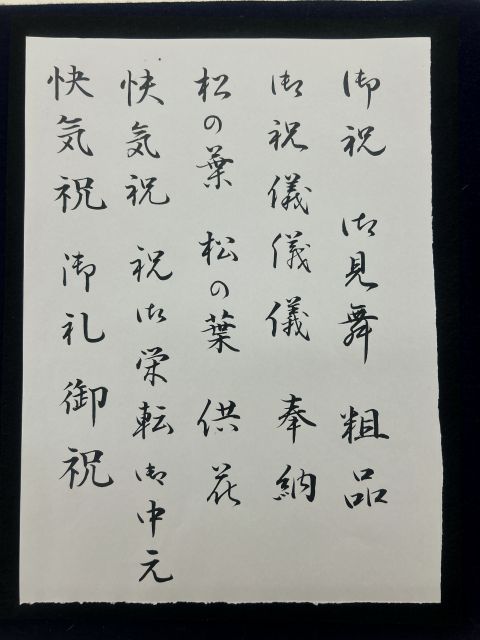 御祝 御見舞 粗品
御祝儀儀儀 奉納
松の葉 松の葉 供花
快気祝 祝御栄転御中元
快気祝 御礼御祝